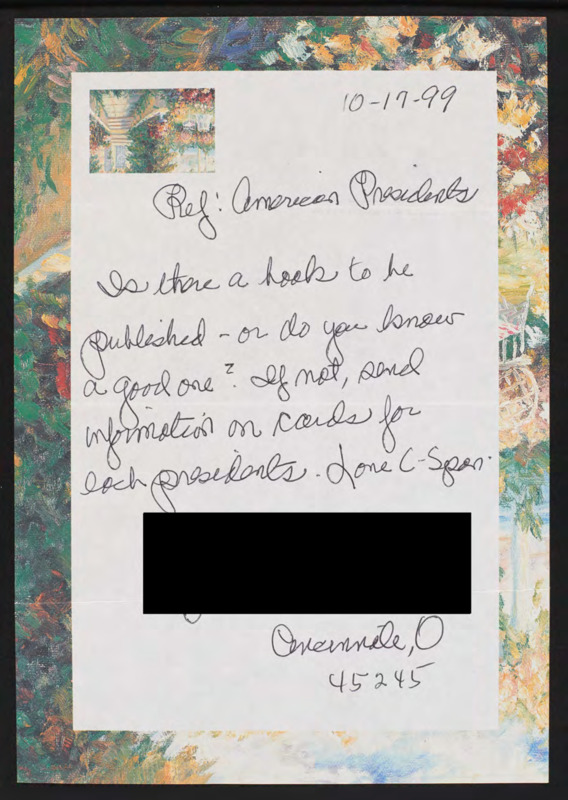 10-17-99
Ref: American Presidents
Is there a book to be
published - or do you know
a good one? If not, send
information on cards for
each presidents. Love C-Span.
Cincinnati, O
45245